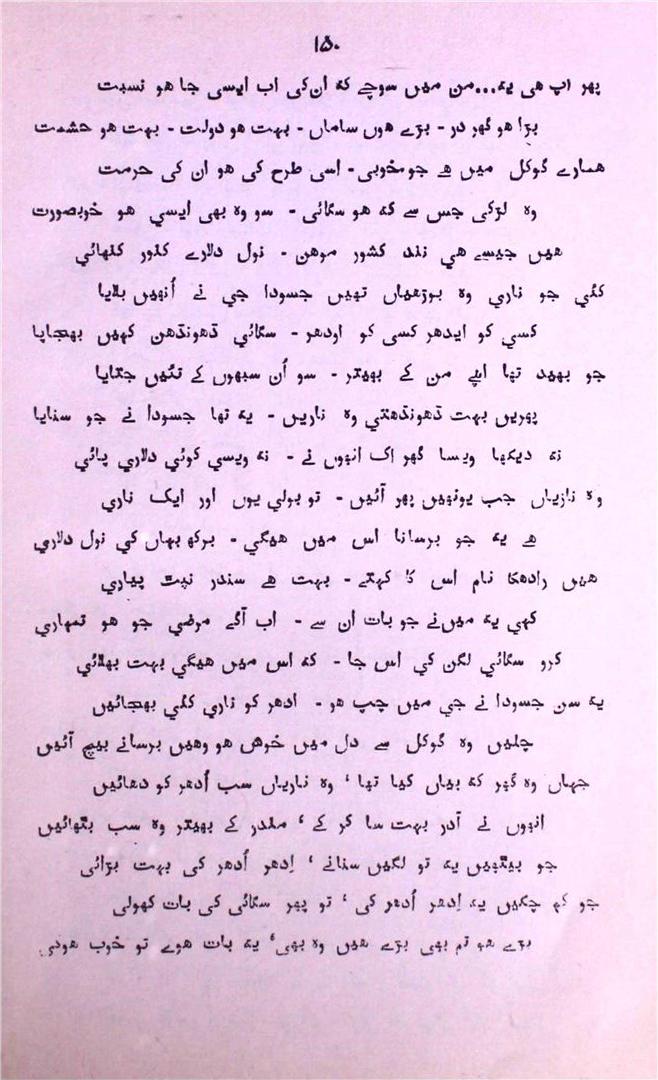 ۱۵۰
پھر آپ ھی یہ...من میں سوچے کہ ان کی اب ایسی جا ھو نسبت
بڑا ھو گھر در - بڑے ھوں ساماں - بہت ھو دولت - بہت ھو حشمت
ھمارے گوکل میں ھے جو خوبی - اسی طرح کی ھو ان کی حرمت
وہ لڑکی جس سے کہ ھو سگائی - سو وہ بھی ایسی ھو خوبصورت
ھیں جیسے ھی نند کشور موھن - نول دلارے کنور کنھائی
کئی جو ناری وہ بوڑھیاں تھیں جسودا جی نے اُنھیں بلایا
کسی کو ایدھر کسی کو اودھر - سگائی ڈھونڈھن کہیں بھجایا
جو بھید تھا اپنے من کے بھیتر - سو اُن سبھوں کے تئیں جتایا
پھریں بہت ڈھونڈھتی وہ ناریں - یہ تھا جسودا نے جو سنایا
نہ دیکھا ویسا گھر اک انہوں نے - نہ ویسی کوئی دلاری پائی
وہ ناریاں جب یونھیں پھر آئیں - تو بولی یوں اور ایک ناری
ھے یہ جو برسانا اس میں ھیگی - برکھ بھاں کی نول دلاری
ھیں رادھکا نام اس کا کہتے - بہت ھے سندر نپٹ پیاری
کہی یہ میں نے جو بات ان سے - اب آگے مرضی جو ھو تمہاری
کرو سگائی لگن کی اس جا - کہ اس میں ھیگی بہت بھلائی
یہ سن جسودا نے جی میں چپ ھو - ادھر کو ناری کئی بھجائیں
چلیں وہ گوکل سے دل میں خوش ھو وھیں برسانے بیچ آئیں
جہاں وہ گھر کہ بیاں کیا تھا ' وہ ناریاں سب اُدھر کو دھائیں
انہوں نے آدر بہت سا کر کے ' مندر کے بھیتر وہ سب بٹھائیں
جو بیٹھیں یہ تو لگیں سنانے ' اِدھر اُدھر کی بہت بڑائی
جو کہ چکیں یہ اِدھر اُدھر کی ' تو پھر سگائی کی بات کھولی
بڑے ھو تم بھی بڑے ھیں وہ بھی ' یہ بات ھوے تو خوب ھوئی